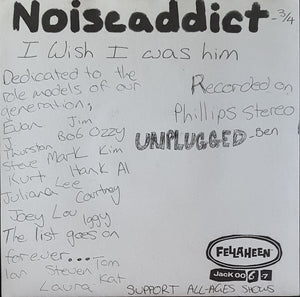 Noiseaddict - 3/4
I Wish I was him
Dedicated to the
role models of our
generation;
Evan Jim
J Bob Ozzy
Thurston
Steve Mark Kim
Kurt Hank Al
Juliana Lee
Courtney
Joey Lou Iggy
The list goes on
forever... Tom
Ian Steven Kat
Laura
Recorded on
Phillips Stereo
UNPLUGGED -Ben
FELLAHEEN
JACK 00 6 7
SUPPORT ALL-AGES SHOWS